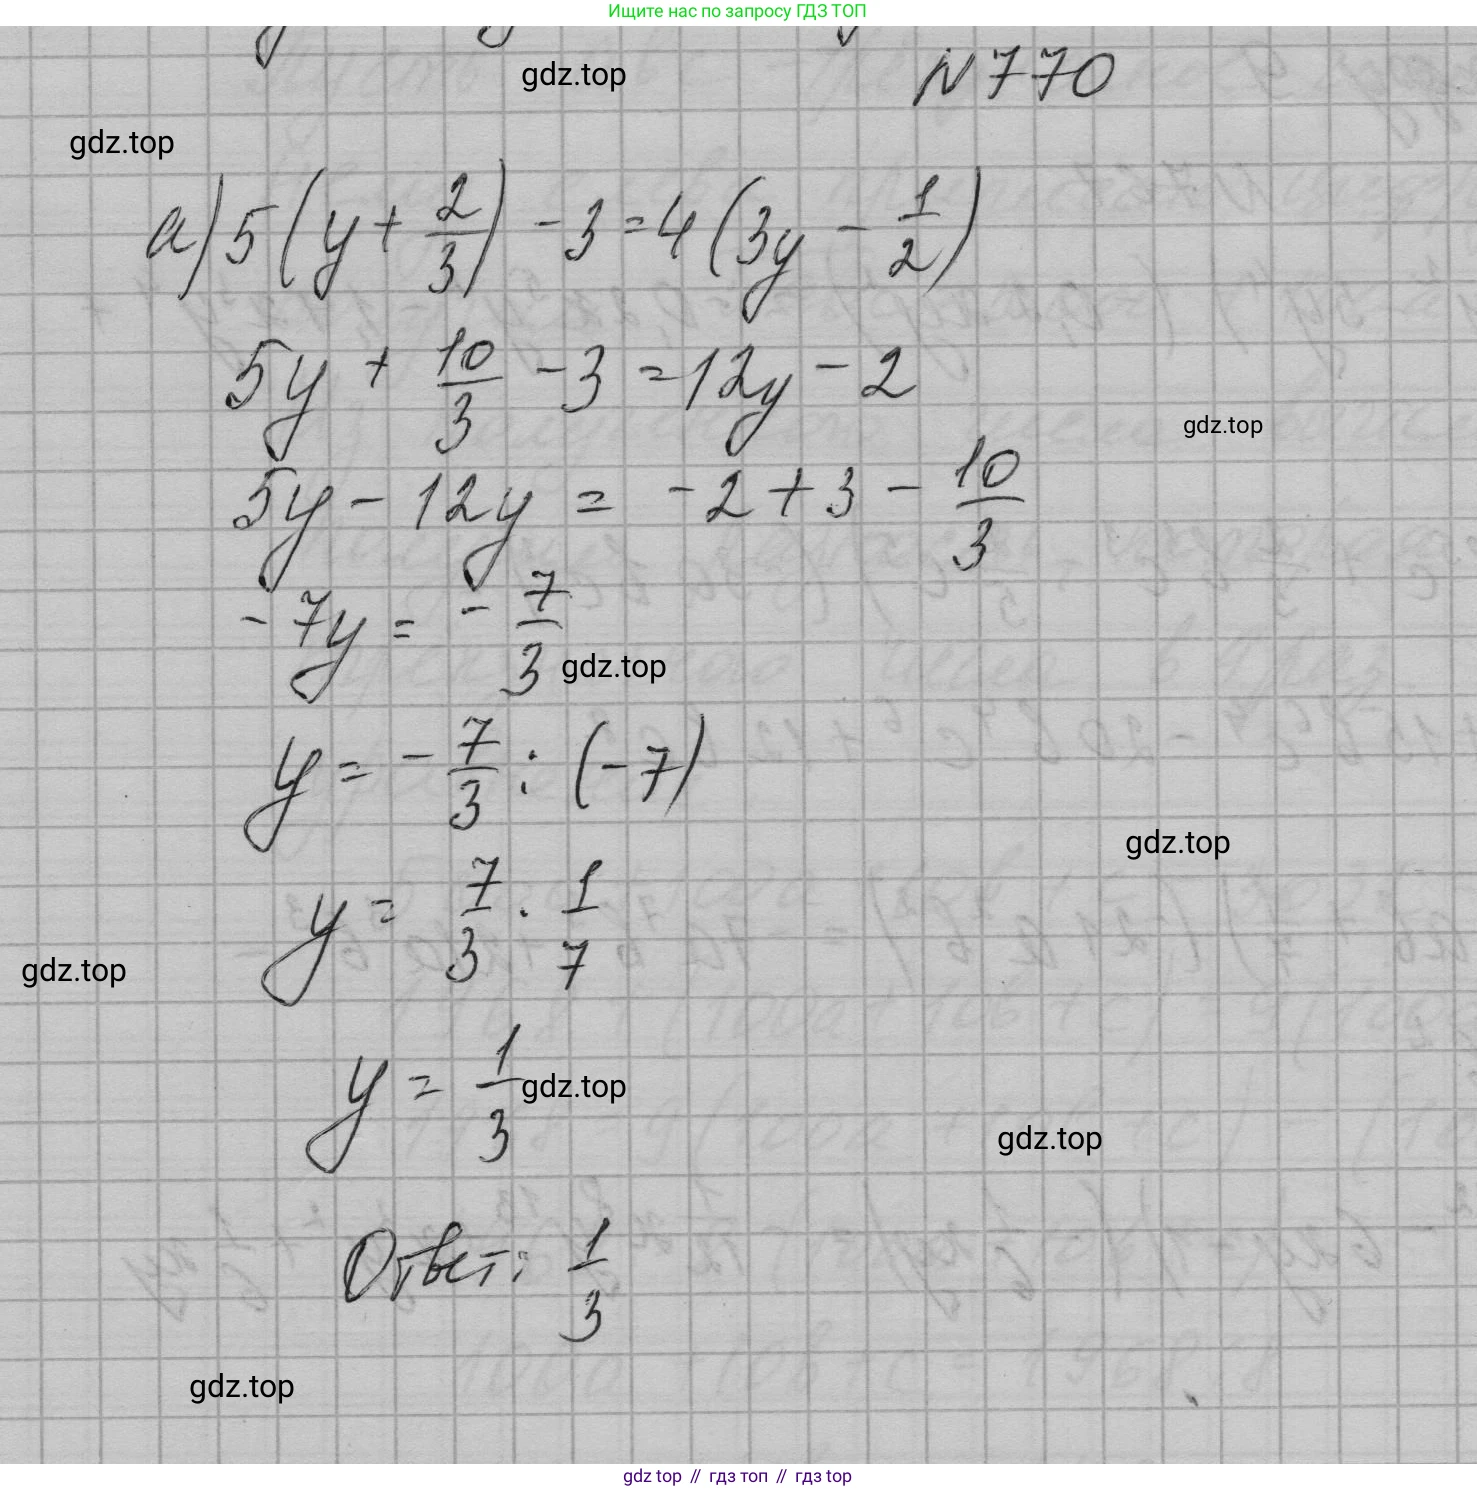 Ищите нас по запросу ГДЗ ТОП
N 770
gdz.top
gdz.top
а) 5(y + 2/3) - 3 = 4(3y - 1/2)
5y + 10/3 - 3 = 12y - 2
gdz.top
5y - 12y = -2 + 3 - 10/3
-7y = -7/3
gdz.top
y = -7/3 : (-7)
gdz.top
y = 7/3 · 1/7
gdz.top
y = 1/3
gdz.top
gdz.top
Ответ: 1/3
gdz.top
gdz top // гдз топ // гдз top